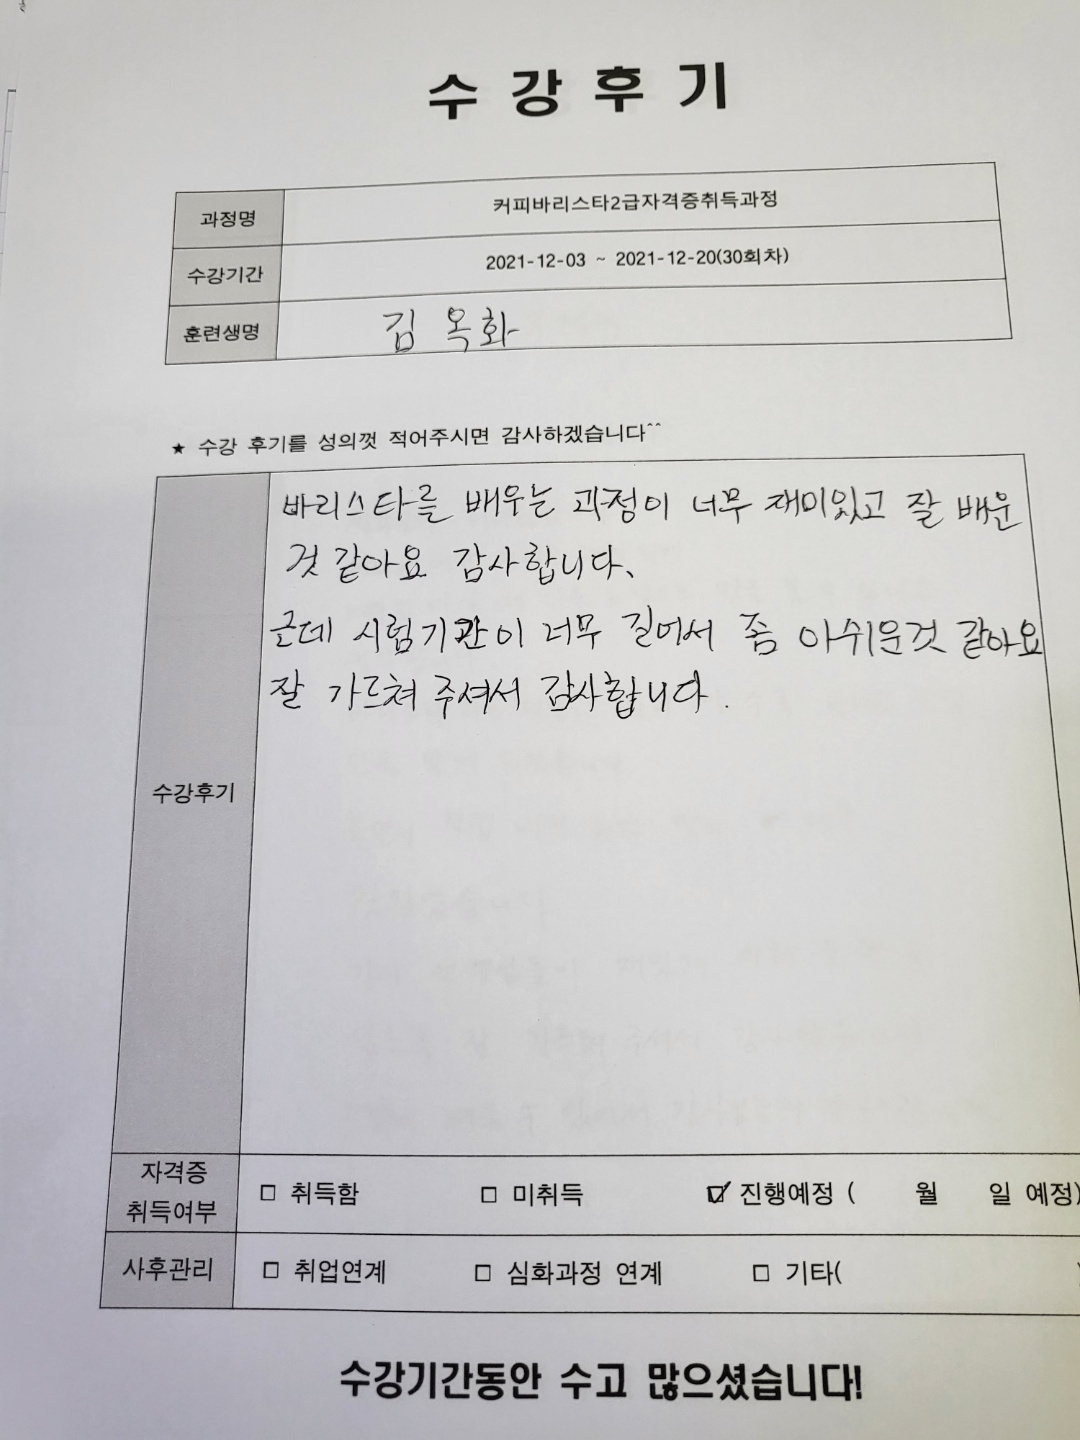 수 강 후 기
과정명 커피바리스타2급자격증취득과정
수강기간 2021-12-03 ~ 2021-12-20(30회차)
훈련생명 김 옥화
★ 수강 후기를 성의껏 적어주시면 감사하겠습니다^^
바리스타를 배우는 과정이 너무 재미있고 잘 배운
것 같아요 감사합니다.
근데 시험기관이 너무 길어서 좀 아쉬운것 같아요
잘 가르쳐 주셔서 감사합니다.
수강후기
자격증
취득여부 □ 취득함 □ 미취득 ☑ 진행예정 ( 월 일 예정)
사후관리 □ 취업연계 □ 심화과정 연계 □ 기타(
수강기간동안 수고 많으셨습니다!